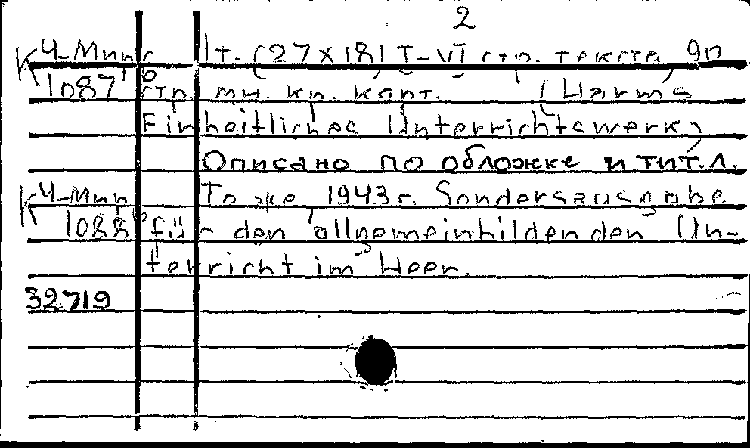 2
К 4-Мир 1т. (27×18) I-VI стр. текста, 90
1087 стр. мн. кр. карт. (Harms
Einheitliches Unterrichtswerk)
Описано по обложке и тит. л.
К 4-Мир То же 1943 г. Sondersausgabe
1088 für den allgemeinbildenden Un-
terricht im Heer.
32719